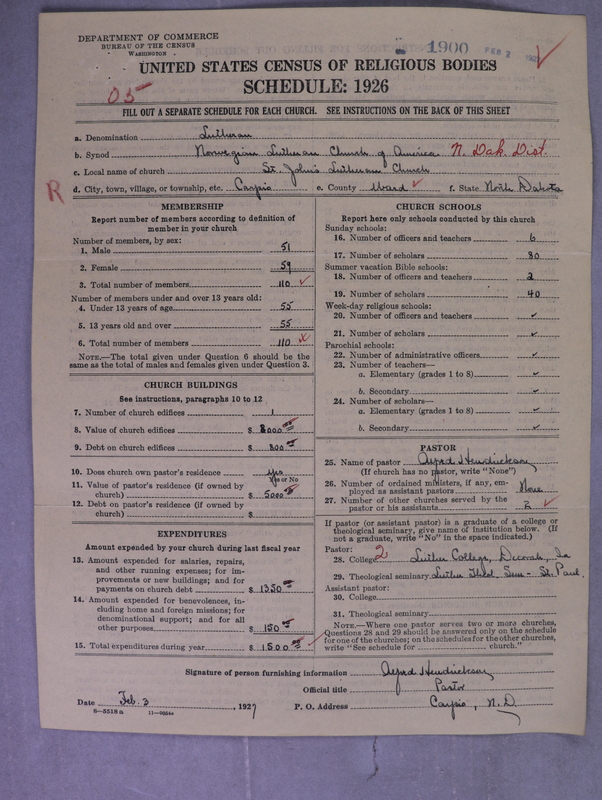 DEPARTMENT OF COMMERCE
BUREAU OF THE CENSUS
WASHINGTON
1900 FEB 2
UNITED STATES CENSUS OF RELIGIOUS BODIES
SCHEDULE: 1926
05
FILL OUT A SEPARATE SCHEDULE FOR EACH CHURCH. SEE INSTRUCTIONS ON THE BACK OF THIS SHEET
a. Denomination Lutheran
b. Synod Norwegian Lutheran Church of America N. Dak. Dist.
c. Local name of church St. John's Lutheran Church
R
d. City, town, village, or township, etc. Carpio e. County Ward f. State North Dakota
MEMBERSHIP
Report number of members according to definition of
member in your church
Number of members, by sex:
1. Male 51
2. Female 59
3. Total number of members 110
Number of members under and over 13 years old:
4. Under 13 years of age 55
5. 13 years old and over 55
6. Total number of members 110
NOTE.—The total given under Question 6 should be the
same as the total of males and females given under Question 3.
CHURCH BUILDINGS
See instructions, paragraphs 10 to 12
7. Number of church edifices 1
8. Value of church edifices $ 8000
9. Debt on church edifices $ 300
10. Does church own pastor's residence yes
Yes or No
11. Value of pastor's residence (if owned by
church) $ 5000
12. Debt on pastor's residence (if owned by
church) $
EXPENDITURES
Amount expended by your church during last fiscal year
13. Amount expended for salaries, repairs,
and other running expenses; for im-
provements or new buildings; and for
payments on church debt $ 1350
14. Amount expended for benevolences, in-
cluding home and foreign missions; for
denominational support; and for all
other purposes $ 150
15. Total expenditures during year $ 1500
CHURCH SCHOOLS
Report here only schools conducted by this church
Sunday schools:
16. Number of officers and teachers 6
17. Number of scholars 30
Summer vacation Bible schools:
18. Number of officers and teachers 2
19. Number of scholars 40
Week-day religious schools:
20. Number of officers and teachers
21. Number of scholars
Parochial schools:
22. Number of administrative officers
23. Number of teachers—
a. Elementary (grades 1 to 8)
b. Secondary
24. Number of scholars—
a. Elementary (grades 1 to 8)
b. Secondary
PASTOR
25. Name of pastor Alfred Hendrickson
(If church has no pastor, write "None")
26. Number of ordained ministers, if any, em-
ployed as assistant pastors None
27. Number of other churches served by the
pastor or his assistants 2
If pastor (or assistant pastor) is a graduate of a college or
theological seminary, give name of institution below. (If
not a graduate, write "No" in the space indicated.)
Pastor:
28. College 2 Luther College, Decorah, Ia
29. Theological seminary Luther Theol. Sem - St. Paul.
Assistant pastor:
30. College
31. Theological seminary
NOTE.—Where one pastor serves two or more churches,
Questions 28 and 29 should be answered only on the schedule
for one of the churches; on the schedules for the other churches,
write "See schedule for church."
Signature of person furnishing information Alfred Hendrickson
Official title Pastor
Date Feb. 3, 1927 P. O. Address Carpio, N.D.
6—5518 a